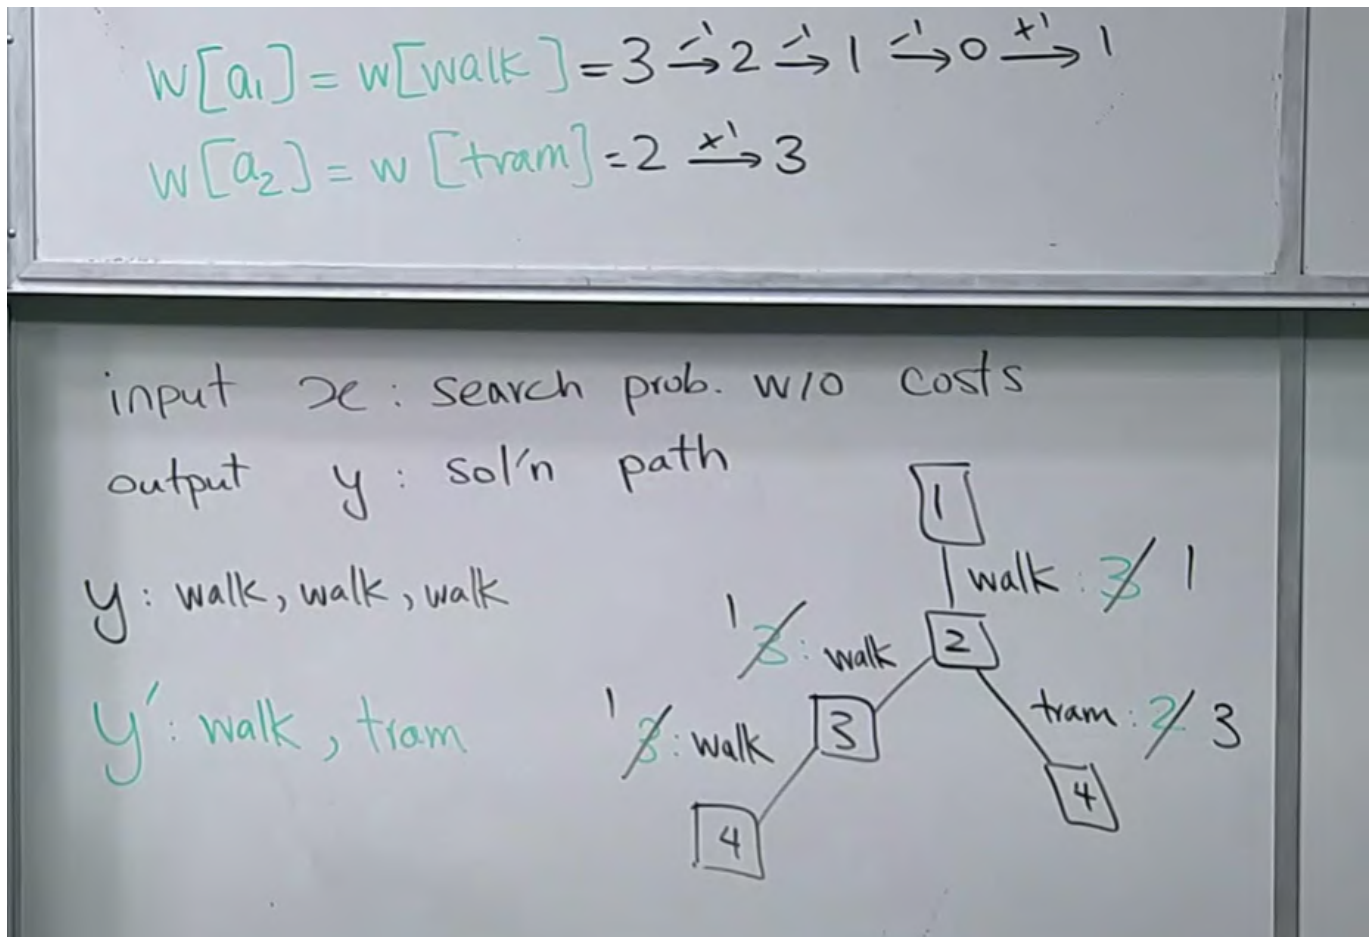 w[a₁] = w[walk] = 3 -1→ 2 -1→ 1 -1→ 0 +1→ 1
w[a₂] = w[tram] = 2 +1→ 3
input x : search prob. w/o costs
output y : sol'n path
1
walk : 3 1
y : walk, walk, walk
1 3 : walk
2
y' : walk, tram
1 3 : walk
3
tram : 2 3
4
4